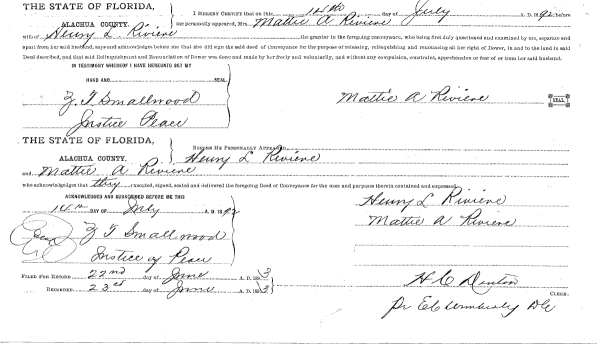 THE STATE OF FLORIDA,
ALACHUA COUNTY.
I HEREBY CERTIFY that on this 14th day of July A. D. 1892 before
me personally appeared, Mrs. Mattie A Riviere
wife of Henry L. Riviere the grantor in the foregoing conveyance, who being first duly questioned and examined by me, separate and
apart from her said husband, says and acknowledges before me that she did sign the said deed of Conveyance for the purpose of releasing, relinquishing and renouncing all her right of Dower, in and to the land in said
Deed described, and that said Relinquishment and Renunciation of Dower was done and made by her freely and voluntarily, and without any compulsion, constraint, apprehension or fear of or from her said husband.
IN TESTIMONY WHEREOF I HAVE HEREUNTO SET MY
HAND AND SEAL
Z. T. Smallwood
Justice Peace
Mattie A Riviere
SEAL
THE STATE OF FLORIDA,
ALACHUA COUNTY.
BEFORE ME PERSONALLY APPEARED Henry L Riviere
and Mattie A Riviere
who acknowledges that they executed, signed, sealed and delivered the foregoing Deed of Conveyance for the uses and purposes therein contained and expressed
ACKNOWLEDGED AND SUBSCRIBED BEFORE ME THIS
14th DAY OF July A. D. 1892
Seal
Z T Smallwood
Justice of Peace
Henry L Riviere
Mattie A Riviere
FILED FOR RECORD 22nd day of June A. D. 1893
RECORDED 23rd day of June A. D. 1893
H C Denton
CLERK.
Pr E C Wimberly DC